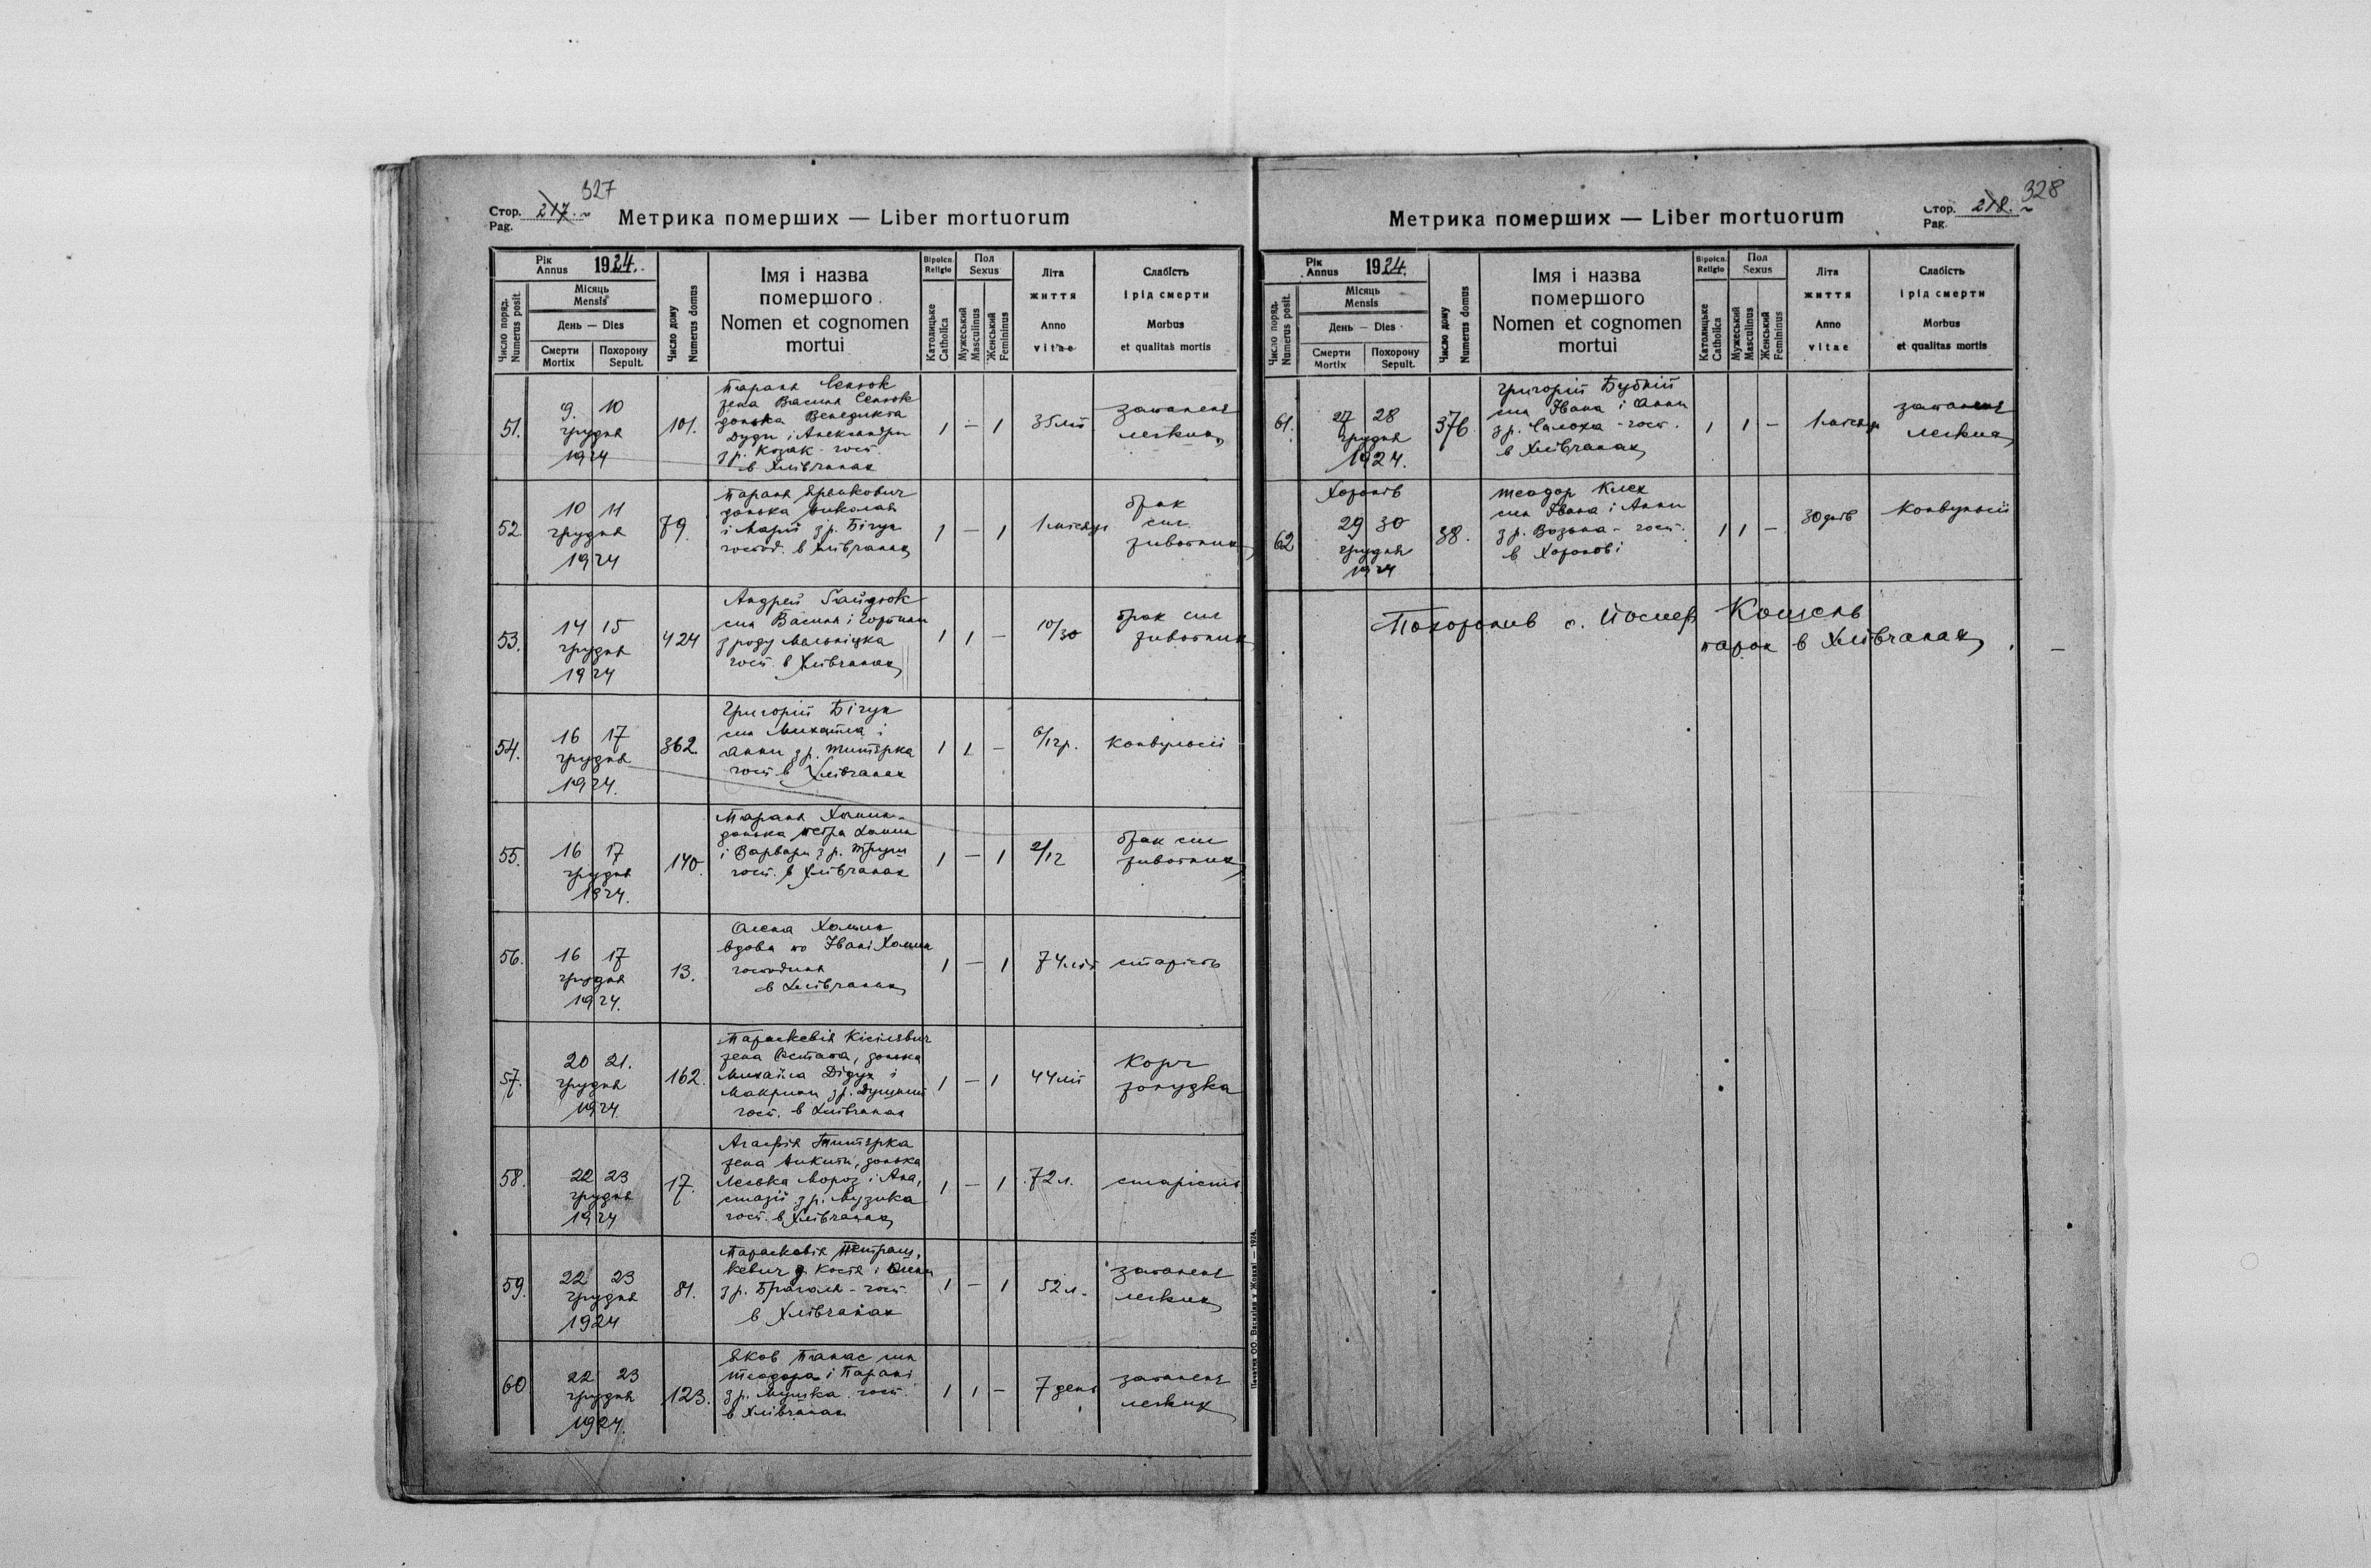 327
Стор. 217.
Pag.
Метрика померших — Liber mortuorum
Рік
Annus 1924.
Число поряд.
Numerus posit.
Місяць
Mensis
День — Dies
Смерти
Mortix
Похорону
Sepult.
Число дому
Numerus domus
Імя і назва
помершого
Nomen et cognomen
mortui
Віроісп.
Religio
Католицьке
Catholica
Пол
Sexus
Мужеський
Masculinus
Женський
Femininus
Літа
життя
Anno
vitae
Слабість
і рід смерти
Morbus
et qualitas mortis
51. 9. 10
грудня
1924
101.
Параня Сенюк
жена Василя Сенюк
донька Венедикта
Дуди і Александри
з р. Козак - госп.
в Хлівчанах
1 — 1
35 літ
запаленя
легких
52. 10 11
грудня
1924
79.
Параня
донька Николая
і Марії з р. Бігун
господ. в Хлівчанах
1 — 1
1 місяць
брак
сил
животних
53. 14 15
грудня
1924
424
Андрей Гайдюк
син Василя і
з роду Мельніцка
госп. в Хлівчанах
1 1 —
10/30
брак сил
животних
54. 16 17
грудня
1924.
362.
Григорій Бігун
син Михайла і
Анни з р. Титярка
госп. в Хлівчанах
1 1 —
6/12 р.
Конвульсії
55. 16 17
грудня
1924.
140.
Параня Хомин
донька Петра Хомин
і Варвари з р. Труш
госп. в Хлівчанах
1 — 1
2/12
брак сил
животних
56. 16 17
грудня
1924.
13.
Олена Хомин
вдова по Івані Хомин
господиня
в Хлівчанах
1 — 1
74 літ
старість
57. 20 21.
грудня
1924
162.
Параскевія Кісілевич
жена Остапа, донька
Михайла Дідух і
Макрини з р.
госп. в Хлівчанах
1 — 1
44 літ
Корч
жолудка
58. 22 23
грудня
1924
17.
Агафія Титярка
жена Никити, донька
Леська Мороз і Ана,
стазії з р. Музика
госп. в Хлівчанах
1 — 1
72 л.
старість
59. 22 23
грудня
1924
81.
Параскевія Петраш,
кевич д. Костя і Олени
з р. - госп.
в Хлівчанах
1 — 1
52 л.
запаленя
легких
60 22 23
грудня
1924.
123.
Яков Панас син
Теодора і Парані
з р. Мушка госп.
в Хлівчанах
1 1 —
7 день
запаленя
легких
Печатня ОО. Василіян у Жовкві — 1924.
328
Метрика померших — Liber mortuorum
Стор. 218.
Pag.
Рік
Annus 1924.
Число поряд.
Numerus posit.
Місяць
Mensis
День — Dies
Смерти
Mortix
Похорону
Sepult.
Число дому
Numerus domus
Імя і назва
помершого
Nomen et cognomen
mortui
Віроісп.
Religio
Католицьке
Catholica
Пол
Sexus
Мужеський
Masculinus
Женський
Femininus
Літа
життя
Anno
vitae
Слабість
і рід смерти
Morbus
et qualitas mortis
61. 27 28
грудня
1924.
376
Григорій Бубній
син Івана і Анни
з р. Салоха - госп.
в Хлівчанах
1 1 —
1 місяць
запаленя
легких
62 Хоронів
29 30
грудня
1924
38.
Теодор Клех
син Івана і Анни
з р. Возьна - госп.
в Хоронові
1 1 —
30 днів
Конвульсії
Похоронив о. Йосиф Кощень
парох в Хлівчанах.